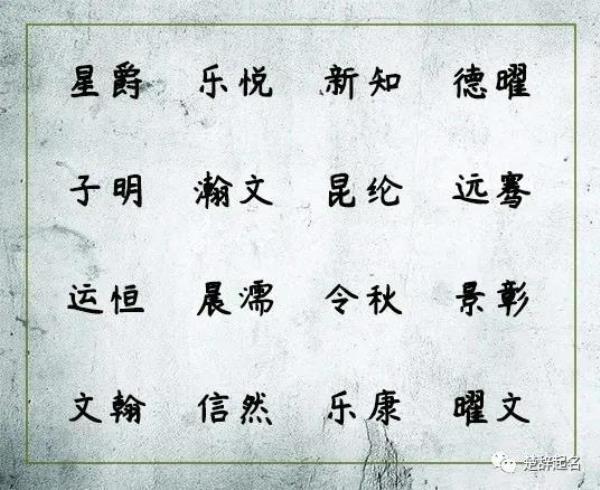 星爵 乐悦 新知 德曜
子明 瀚文 昆纶 远骞
运恒 晨濡 令秋 景彰
文翰 信然 乐康 曜文
楚辞起名